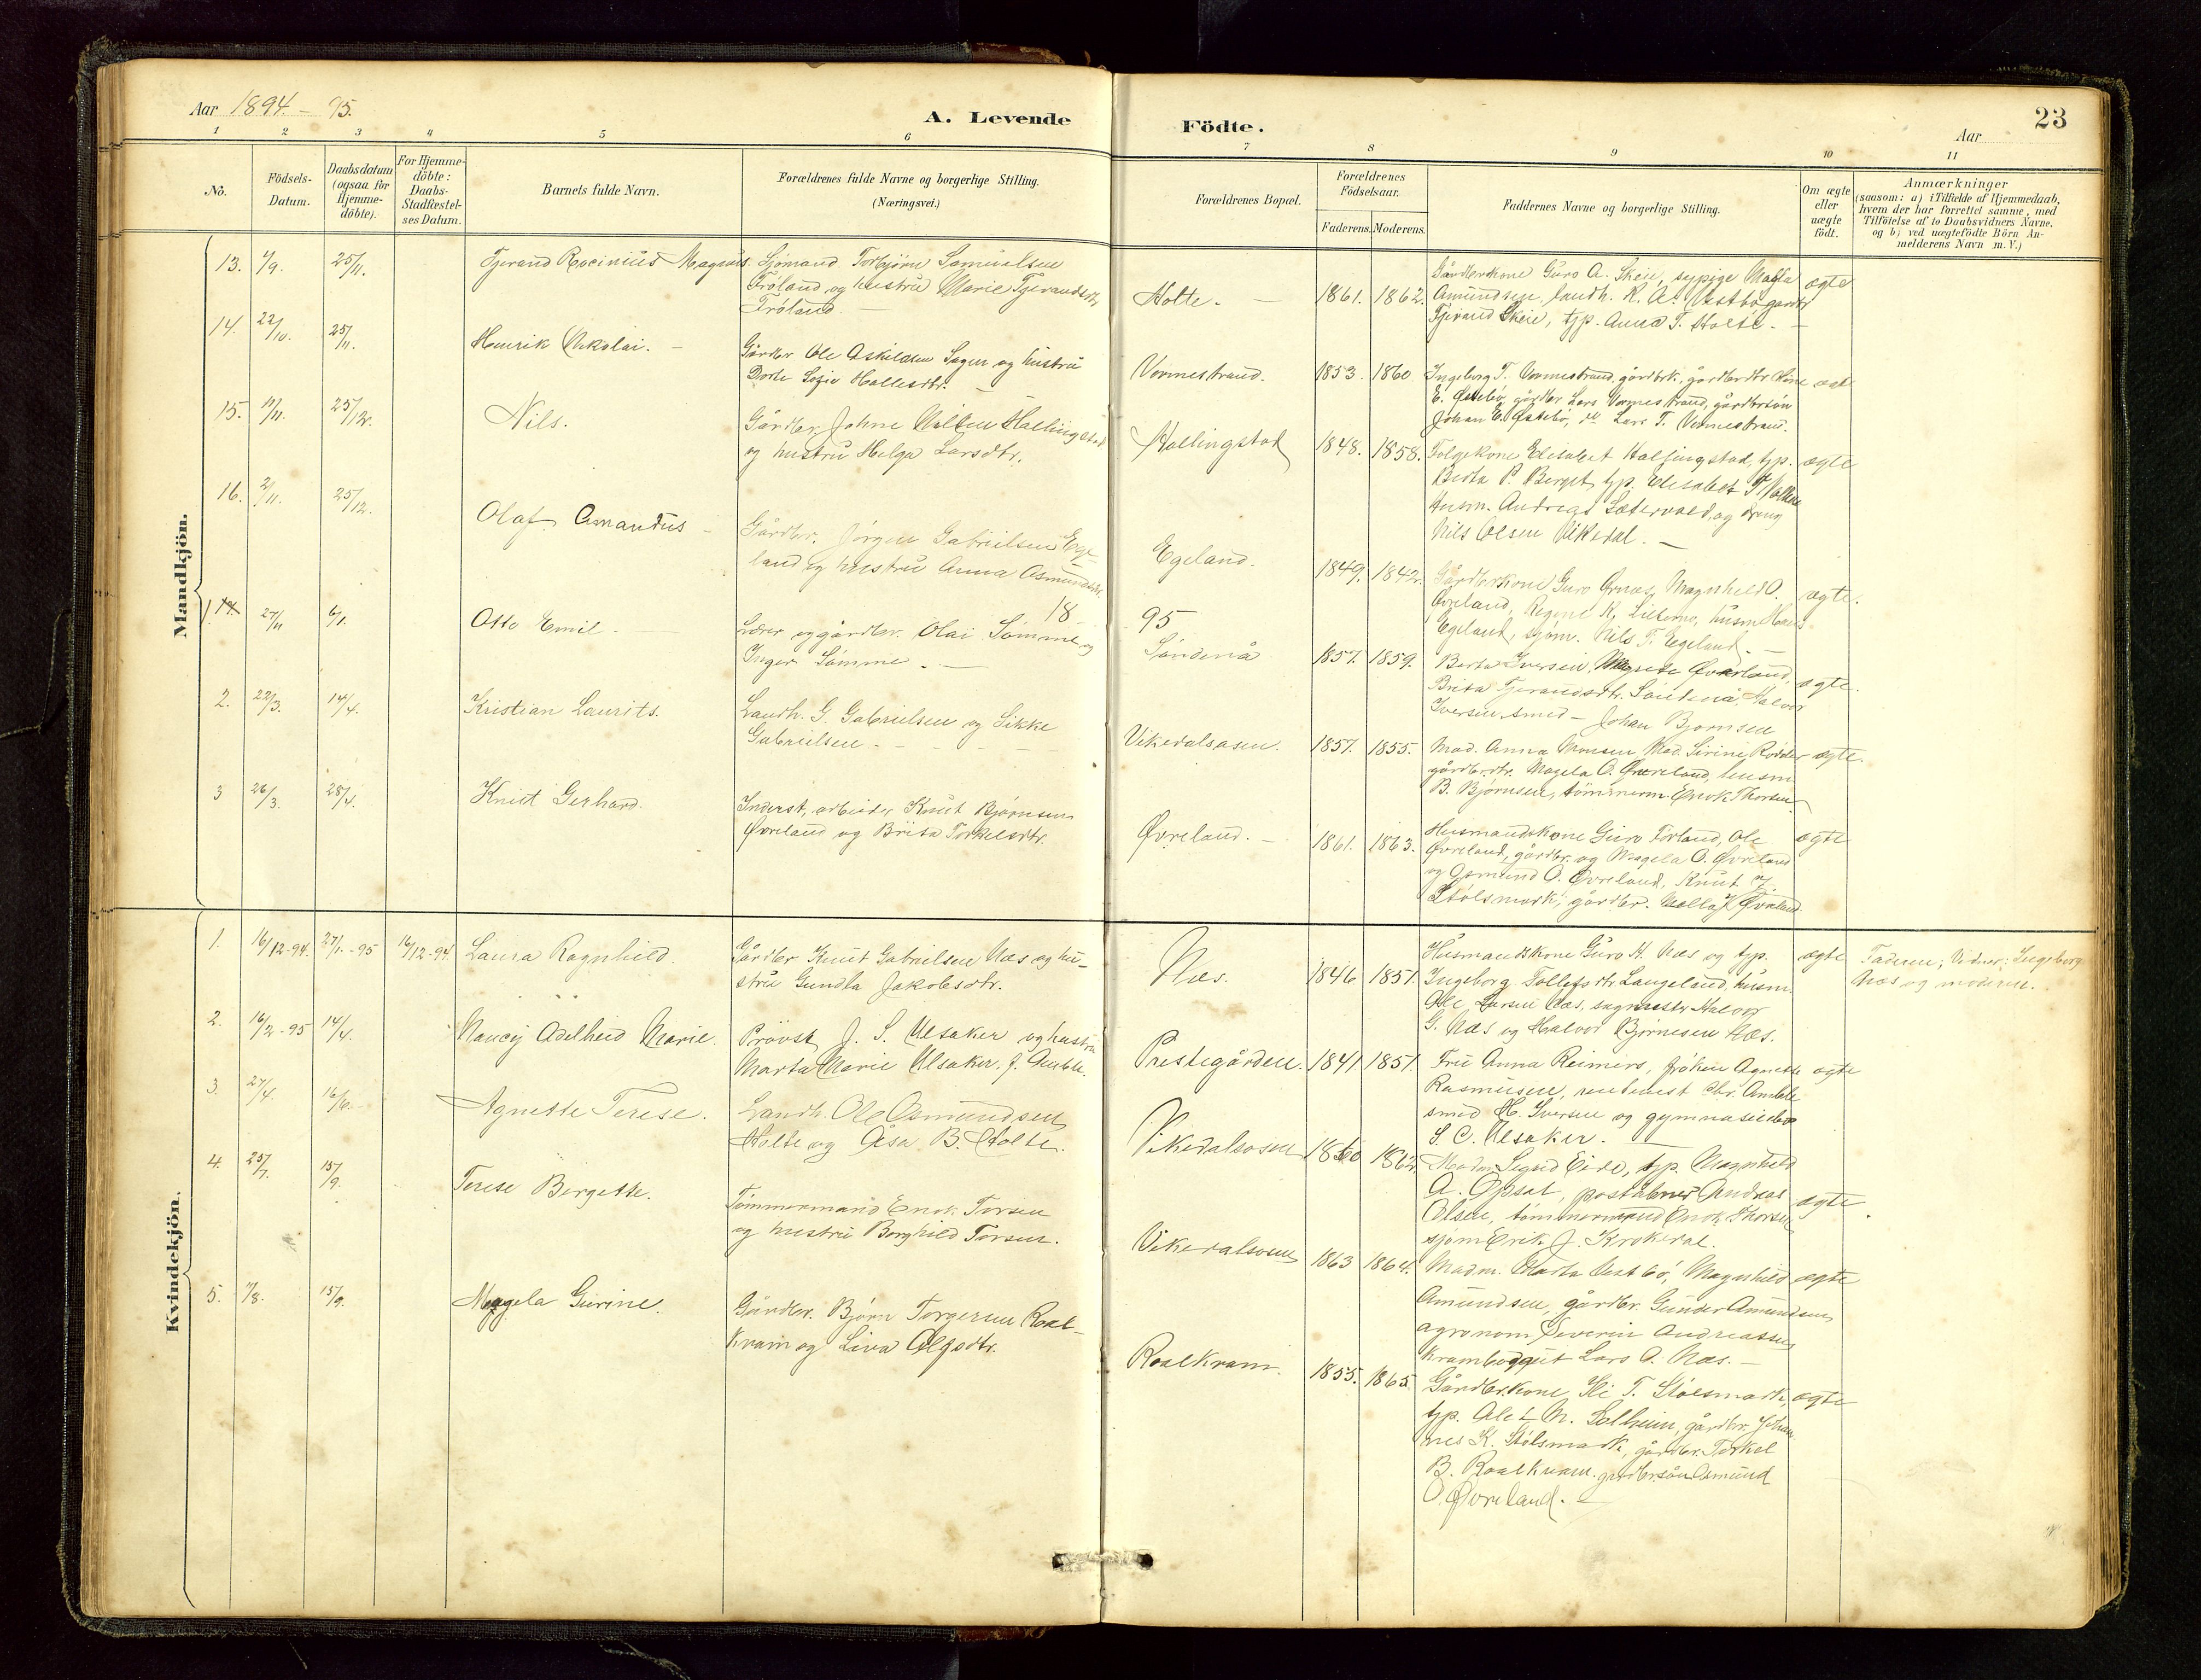 Aar 1894. - 95.
A. Levende Födte.
Aar
23
1 2 3 4 5 6 7 8 9 10 11
No.
Födsels-
Datum.
Daabsdatum
(ogsaa for
Hjemme-
döbte).
For Hjemme-
döbte:
Daabs-
Stadfæstel-
ses Datum.
Barnets fulde Navn.
Forældrenes fulde Navne og borgerlige Stilling.
(Næringsvei.)
Forældrenes Bopæl.
Forældrenes
Födselsaar.
Faderens. Moderens.
Faddernes Navne og borgerlige Stilling.
Om ægte
eller
uægte
födt.
Anmærkninger
(saasom: a) i Tilfælde af Hjemmedaab,
hvem der har forrettet samme, med
Tilföielse af to Daabsvidners Navne.
og b) ved uægtefödte Börn An-
melderens Navn m. V.)
Mandkjön.
13. 1/9. 25/11. Tjerand Rocinius Magnus. Sjömand Torbjörn Samuelsen
Fröland og hustru Marie Tjerandsdtr.
Fröland. —
Holte. — 1861. 1862.
Gårdbrkone Guro A. Skeie, sypige Magla
Amundsen, landh. K. A. Vestbø, gardbr
Tjerand Skeie, typ. Anna T. Holte. —
ægte
14. 22/10. 25/11. Henrik Nikolai. — Gårdbr Ole Askildsen Sagen og hustru
Dorte Sofie Hallesdtr. —
Vormestrand. 1853. 1860
Ingeborg T. Vormestrand, gårdbrk., gårdbrdtr
E. Østebö, gårdbr Lars Vormestrand, gårdbrsön
Johan E. Østebö, Lars T. Vormestrand.
15. 11/11. 25/12. Nils. Gårdbr. Johne Nilsen Hallingstad
og hustru Helga Larsdtr.
Hallingstad 1848. 1858.
Folgekone Elisabet Haljingstad, typ.
Berta P. Berget, typ. Elisabet
Husm. Andreas Sætervold, og dreng
Nils Olsen Vikedal. —
ægte
16. 2/11. 25/12. Olaf Amandus — Gårdbr. Jörgen Gabrielsen Ege-
land og hustru Anna Osmundsdtr.
Egeland. 1849. 1842.
Gårdbrkone Guro Ørnes, Magnhild O.
Øvreland, Regine K. husm. Hans
Egeland, sjöm. Nils T. Egeland. —
ægte.
18 95
1. 27/11 6/1. Otto Emil. — Lærer og gårdbr. Olai Sömme og
Inger Sömme. —
Sandenå 1857. 1859.
Berta Iversen, Øvreland,
Brita Tjerandsdtr. Sandenå, Halvor
Iversen smed — Johan Bjornsen
ægte.
2. 22/3. 14/4. Kristian Laurits. Landh. G. Gabrielsen og Sikke
Gabrielsen. —
Vikedalsosen. 1857. 1855.
Mad. Anna Mad. Sirine
gårdbrdtr. Magela O. Øvreland, husm.
B. Bjørnsen, tömmerm. Enok Thorsen
ægte.
3 26/3. 28/4. Knut Gerhard. Inderst, arbeider Knut Bjørnsen
Øvreland og Brita Torkelsdtr.
Øvreland. — 1861. 1863.
Husmandskone Guro Forland, Ole
Øvreland, gårdbr. og Magela O. Øvreland
og Osmund O. Øvreland, Knut
Stölsmark, gårdbr. Øvreland
ægte
Kvindekjön.
1. 16/12-94. 27/1.-95 16/12-94. Laura Ragnhild. Gårdbr Knut Gabrielsen Næs og hu-
stru Gundla Jakobsdtr.
Næs. 1846 1851.
Husmandskone Guro H. Næs og typ.
Ingeborg Tollefsdtr Langeland, husm.
Ole Larsen Næs, Halvor
G. Næs og Halvor Bjørnesen Næs.
ægte
Faderen; Vidner: Ingeborg
Næs og moderen.
2. 16/2-95 14/4. Nancy Adelheid Marie. Pròvst J. S. Ulsaker og hustru
Marta Marie Ulsaker. f. Amble.
Prestegården. 1841 1851.
Fru Anna Reimers, fröken Agnette
Rasmussen, Chr. Amble
smed H. Iversen og gymnasielev
S. C. Ulsaker. —
ægte
3. 27/4. 16/6. Agnette Terese. Landh. Ole Osmundsen
Holte og Åsa B. Holte.
Vikedalsosen 1860 1862
Madm. Sigrid Eide, typ. Magnhild
A. Opsal, poståbner Andreas
Olsen, tömmermand Enok Thorsen
sjöm Erik J. Krokedal.
ægte.
4. 25/7. 15/9. Terese Bergette. Tömmermand Enok Torsen
og hustru Borghild Torsen.
Vikedalsosen 1863 1864.
Madm. Marta Vestbö, Magnhild
Amundsen, gårdbr. Gunder Amundsen,
agronom Severin Andreassen,
krambodgut Lars O. Næs. —
ægte
5. 7/8. 15/9. Magela Gurine. Gårdbr. Bjørn Torgersen Roal-
kvam og Liva Olesdtr.
Roalkvam. 1855. 1865.
Gårdbrkone T. Stölsmark,
typ. Alet M. Solheim, gårdbr. Johan-
nes K. Stölsmark, gårdbr. Torkel
B. Roalkvam. gardbrsön Osmund
O. Øvreland. —
ægte